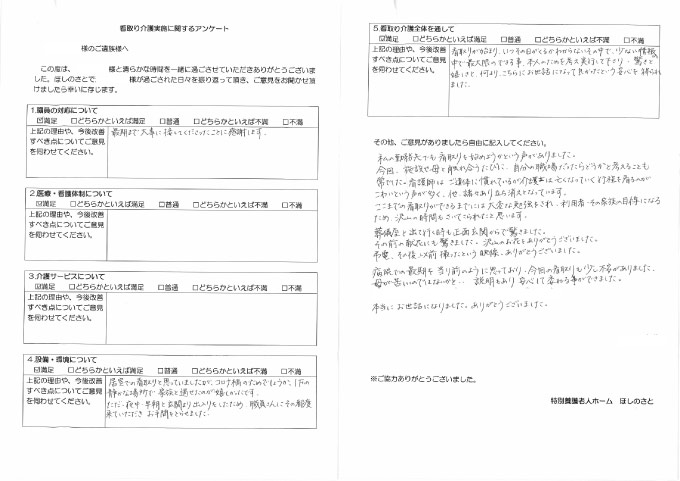 看取り介護実施に関するアンケート
様のご遺族様へ
この度は、　　　様と清らかな時間を一緒に過ごさせていただきありがとうございま
した。ほしのさとで　　　様が過ごされた日々を振り返って頂き、ご意見をお聞かせ頂
けましたら幸いに存じます。
1.職員の対応について
☑満足 □どちらかといえば満足 □普通 □どちらかといえば不満 □不満
上記の理由や、今後改善すべき点についてご意見を伺わせてください。
最期まで大事に接してくださったことに感謝します。
2.医療・看護体制について
☑満足 □どちらかといえば満足 □普通 □どちらかといえば不満 □不満
上記の理由や、今後改善すべき点についてご意見を伺わせてください。
3.介護サービスについて
☑満足 □どちらかといえば満足 □普通 □どちらかといえば不満 □不満
上記の理由や、今後改善すべき点についてご意見を伺わせてください。
4.設備・環境について
☑満足 □どちらかといえば満足 □普通 □どちらかといえば不満 □不満
上記の理由や、今後改善すべき点についてご意見を伺わせてください。
居室での看取りと思っていましたが、コロナ禍のためでしょうか、1Fの
静かな場所で家族と過せたのが嬉しかったです。
ただ、夜中・早朝と玄関より出入りをしたため、職員さんにその都度
来ていただき お手間をとらせました。
5.看取り介護全体を通して
☑満足 □どちらかといえば満足 □普通 □どちらかといえば不満 □不満
上記の理由や、今後改善すべき点についてご意見を伺わせてください。
看取りが始まり、いつその日がくるかわからないその中で、少ない情報
中で最大限のできる事、本人のためを考え実行して下さり、驚きと
嬉しさと、何より、こちらにお世話になって良かったという安心を得られ
ました。
その他、ご意見がありましたら自由に記入してください。
私の勤務先でも看取りを始めようかという声がありました。
今回、施設や母と触れ合うたびに、自分の職場だったらどうかと考えることも
常でした。看護師は、ご遺体に慣れているが介護士は亡くなっていく対様を看るのが
こわいという声が多く、他、諸々あり立ち消えとなっています。
ここまでの看取りができるまでには大変な勉強をされ、利用者・その家族の目標になる
ため、沢山の時間もさいてこられたと思います。
葬儀屋と出て行く時も正面玄関からで驚きました。
その前の献花にも驚きました。沢山のお花をありがとうございました。
弔電、その後、以前撮ったという映像、ありがとうございました。
病院での最期を当り前のように思っており、今回の看取りも少し不安がありました、
母が苦しいのではないかと… 説明もあり 安心して委ねる事ができました。
本当にお世話になりました。ありがとうございました。
※ご協力ありがとうございました。
特別養護老人ホーム　ほしのさと